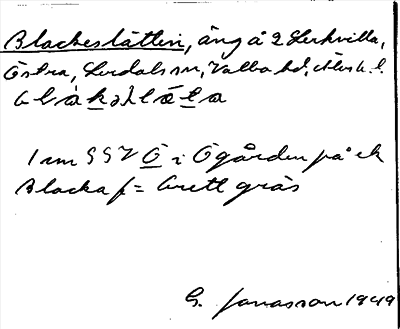 Blackeslätten, äng å 2 Lerkvilla,
Östra, Lerdals sn, Valbo hd, Älvsb. l.
blàkəslǽta
1 m SSV Ö i Ögården på ek
Blacka f = brett gräs
G. Jonasson 1949